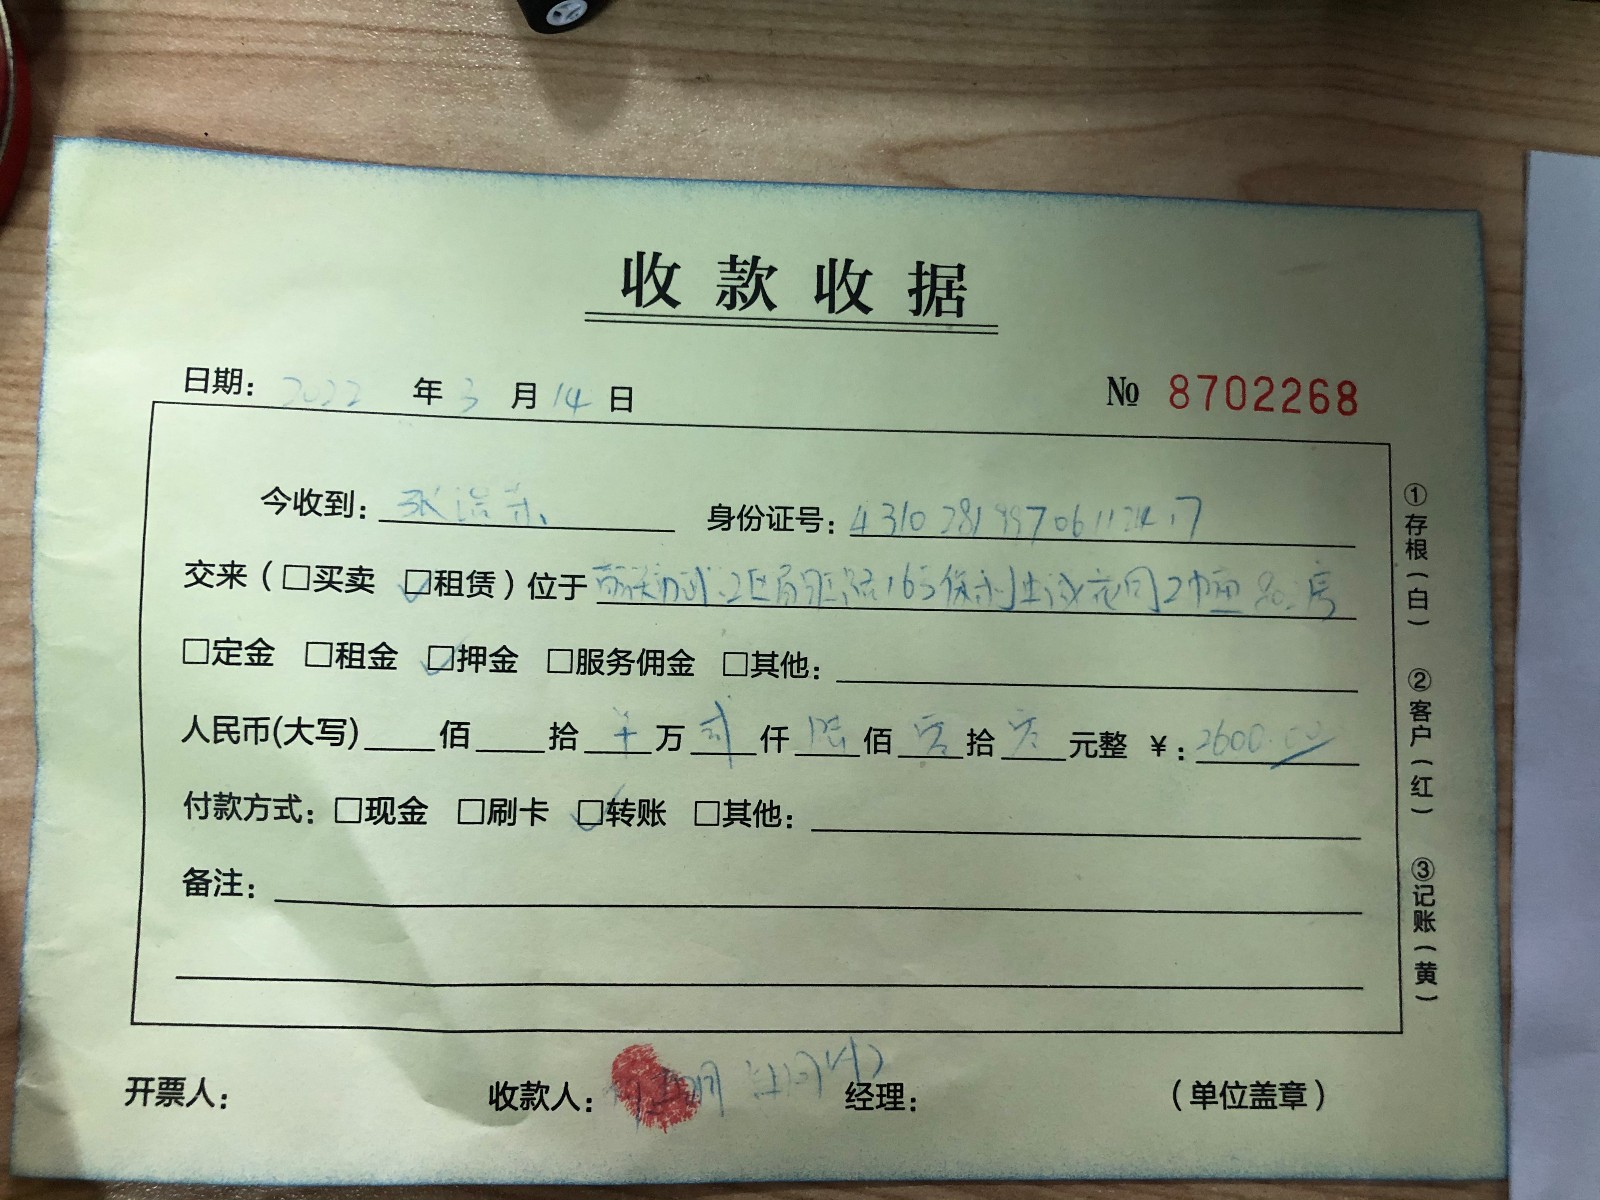 收款收据
日期: 2022 年 3 月 14 日 № 8702268
今收到: 张浩 身份证号:
交来(□买卖 ☑租赁)位于 花园2幢 房
□定金 □租金 ☑押金 □服务佣金 □其他:
人民币(大写) 佰 拾 万 贰 仟 陆 佰 零 拾 零 元整 ¥: 2600.00
付款方式: □现金 □刷卡 ☑转账 □其他:
备注:
开票人: 收款人: 经理: (单位盖章)
①存根(白)
②客户(红)
③记账(黄)